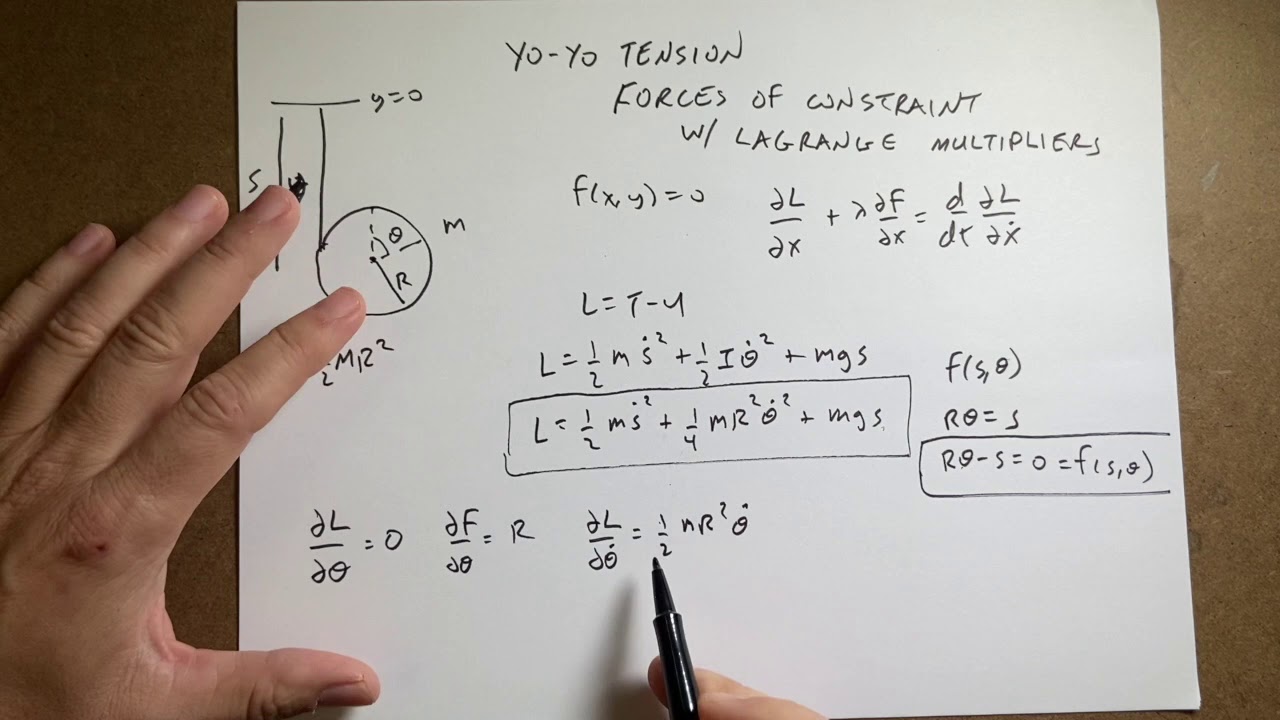 YO-YO TENSION
FORCES OF CONSTRAINT
W/ LAGRANGE MULTIPLIERS
y=0
S
m
θ
R
½MR²
f(x,y)=0 ∂L/∂x + λ ∂F/∂x = d/dt ∂L/∂ẋ
L=T-U
L=½mṡ²+½Iθ̇²+mgs
L=½mṡ²+¼mR²θ̇²+mgs
f(s,θ)
Rθ=s
Rθ-s=0=f(s,θ)
∂L/∂θ=0 ∂F/∂θ=R ∂L/∂θ̇=½mR²θ̇